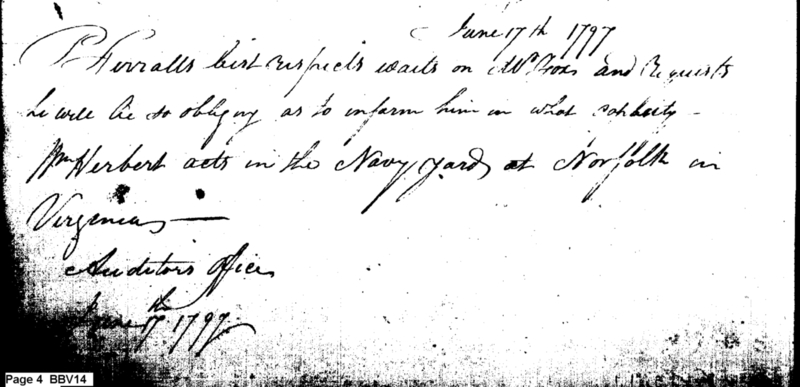 June 17th 1797
P Ferralls best respects waits on Mr. Fox and Requests
he will be so obliging as to inform him in what capacity -
Wm Herbert acts in the Navy yard at Norfolk in
Virginia —
Auditors office
June 17th 1797
Page 4 BBV14